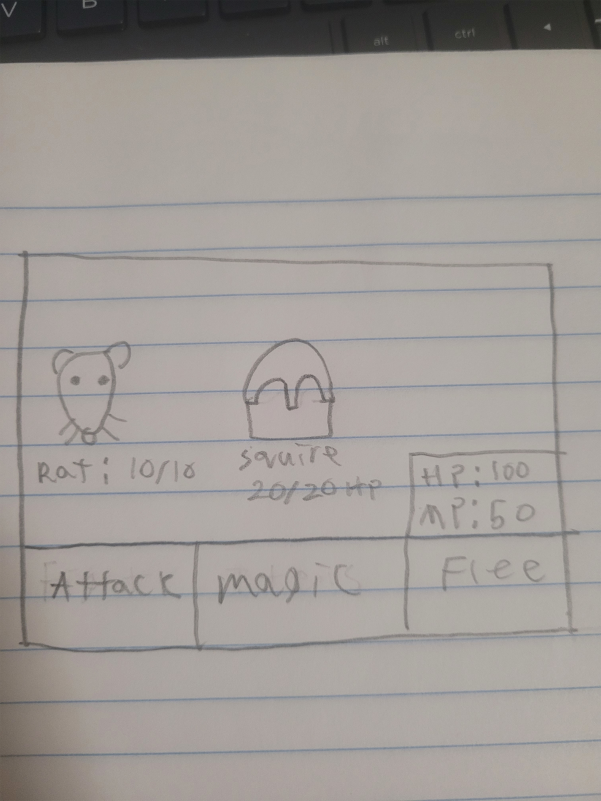 B
alt
ctrl
Rat: 10/10
squire
20/20 HP
HP:100
MP:50
Attack
magic
Flee